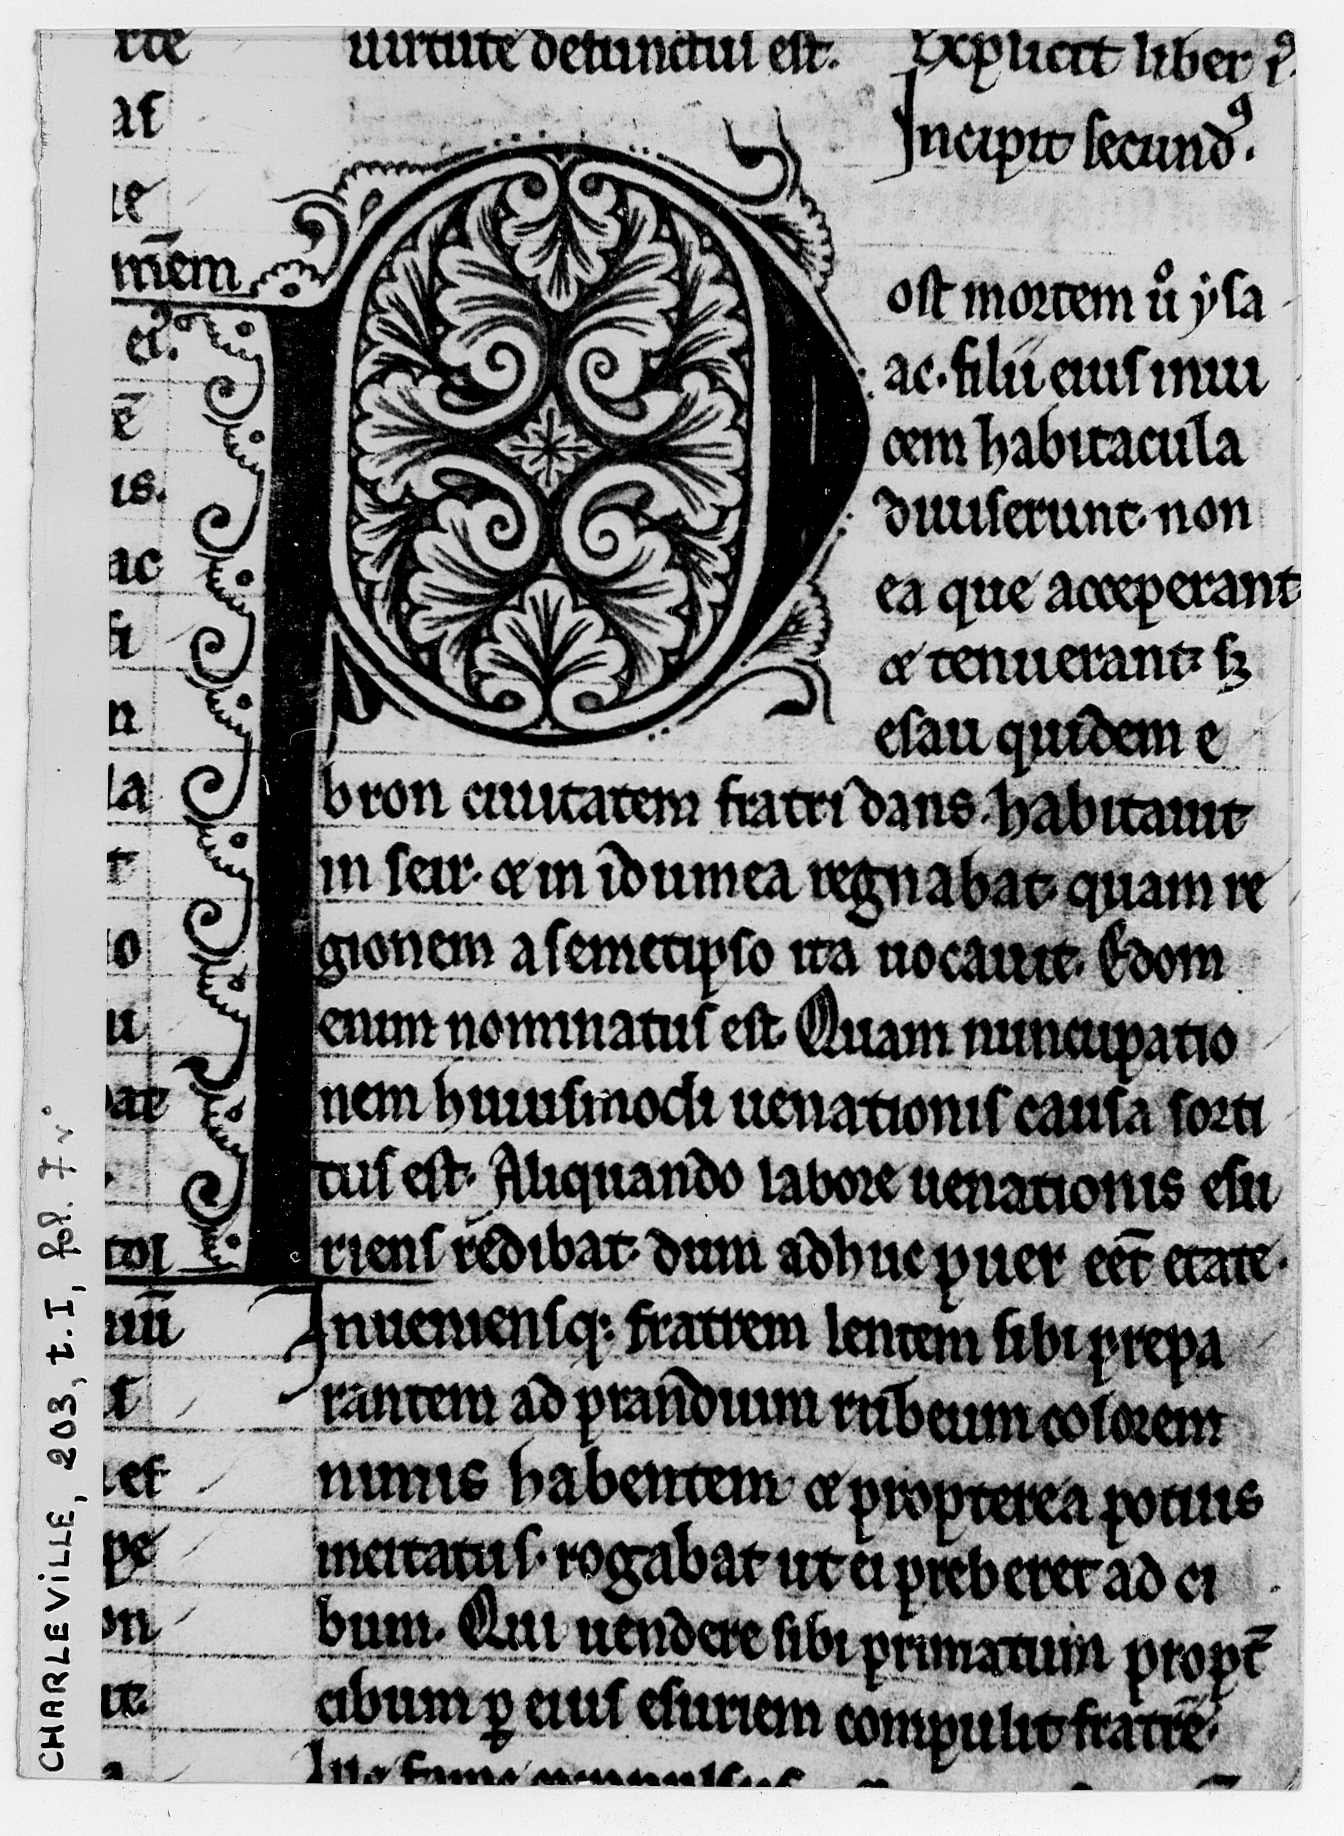 rte
as
ie
mēm
ei.
ē
us.
ac
fi
n
la
t
io
u
bat
tol
uiū
t
et
pe
on
it.
uirtute defunctus est. Explicit liber i9.
Incipit secund9.
ost mortem uͦ ysa
ac. filii eius inui
cem habitacula
diuiserunt. non
ea que acceperant
& tenuerant: sꝫ
esau quidem e
bron ciuitatem fratri dans. habitauit
in seir. & in idumea regnabat. quam re
gionem a semetipso ita uocauit. Edom
enim nominatus est. Quam nuncupatio
nem huiusmodi uenationis causa sorti
tus est. Aliquando labore uenationis esu
riens redibat. dum adhuc puer eēt etate.
Inueniensq: fratrem lentem sibi prepa
rantem ad prandium rubeum colorem
nimis habentem. & propterea potius
incitatus. rogabat ut ei preberet ad ci
bum. Qui uendere sibi primatum propt̄
cibum ꝑ eius esuriem compulit fratrē.
Ille fame compulsus
CHARLEVILLE, 203, t. I, fol. 7 v°